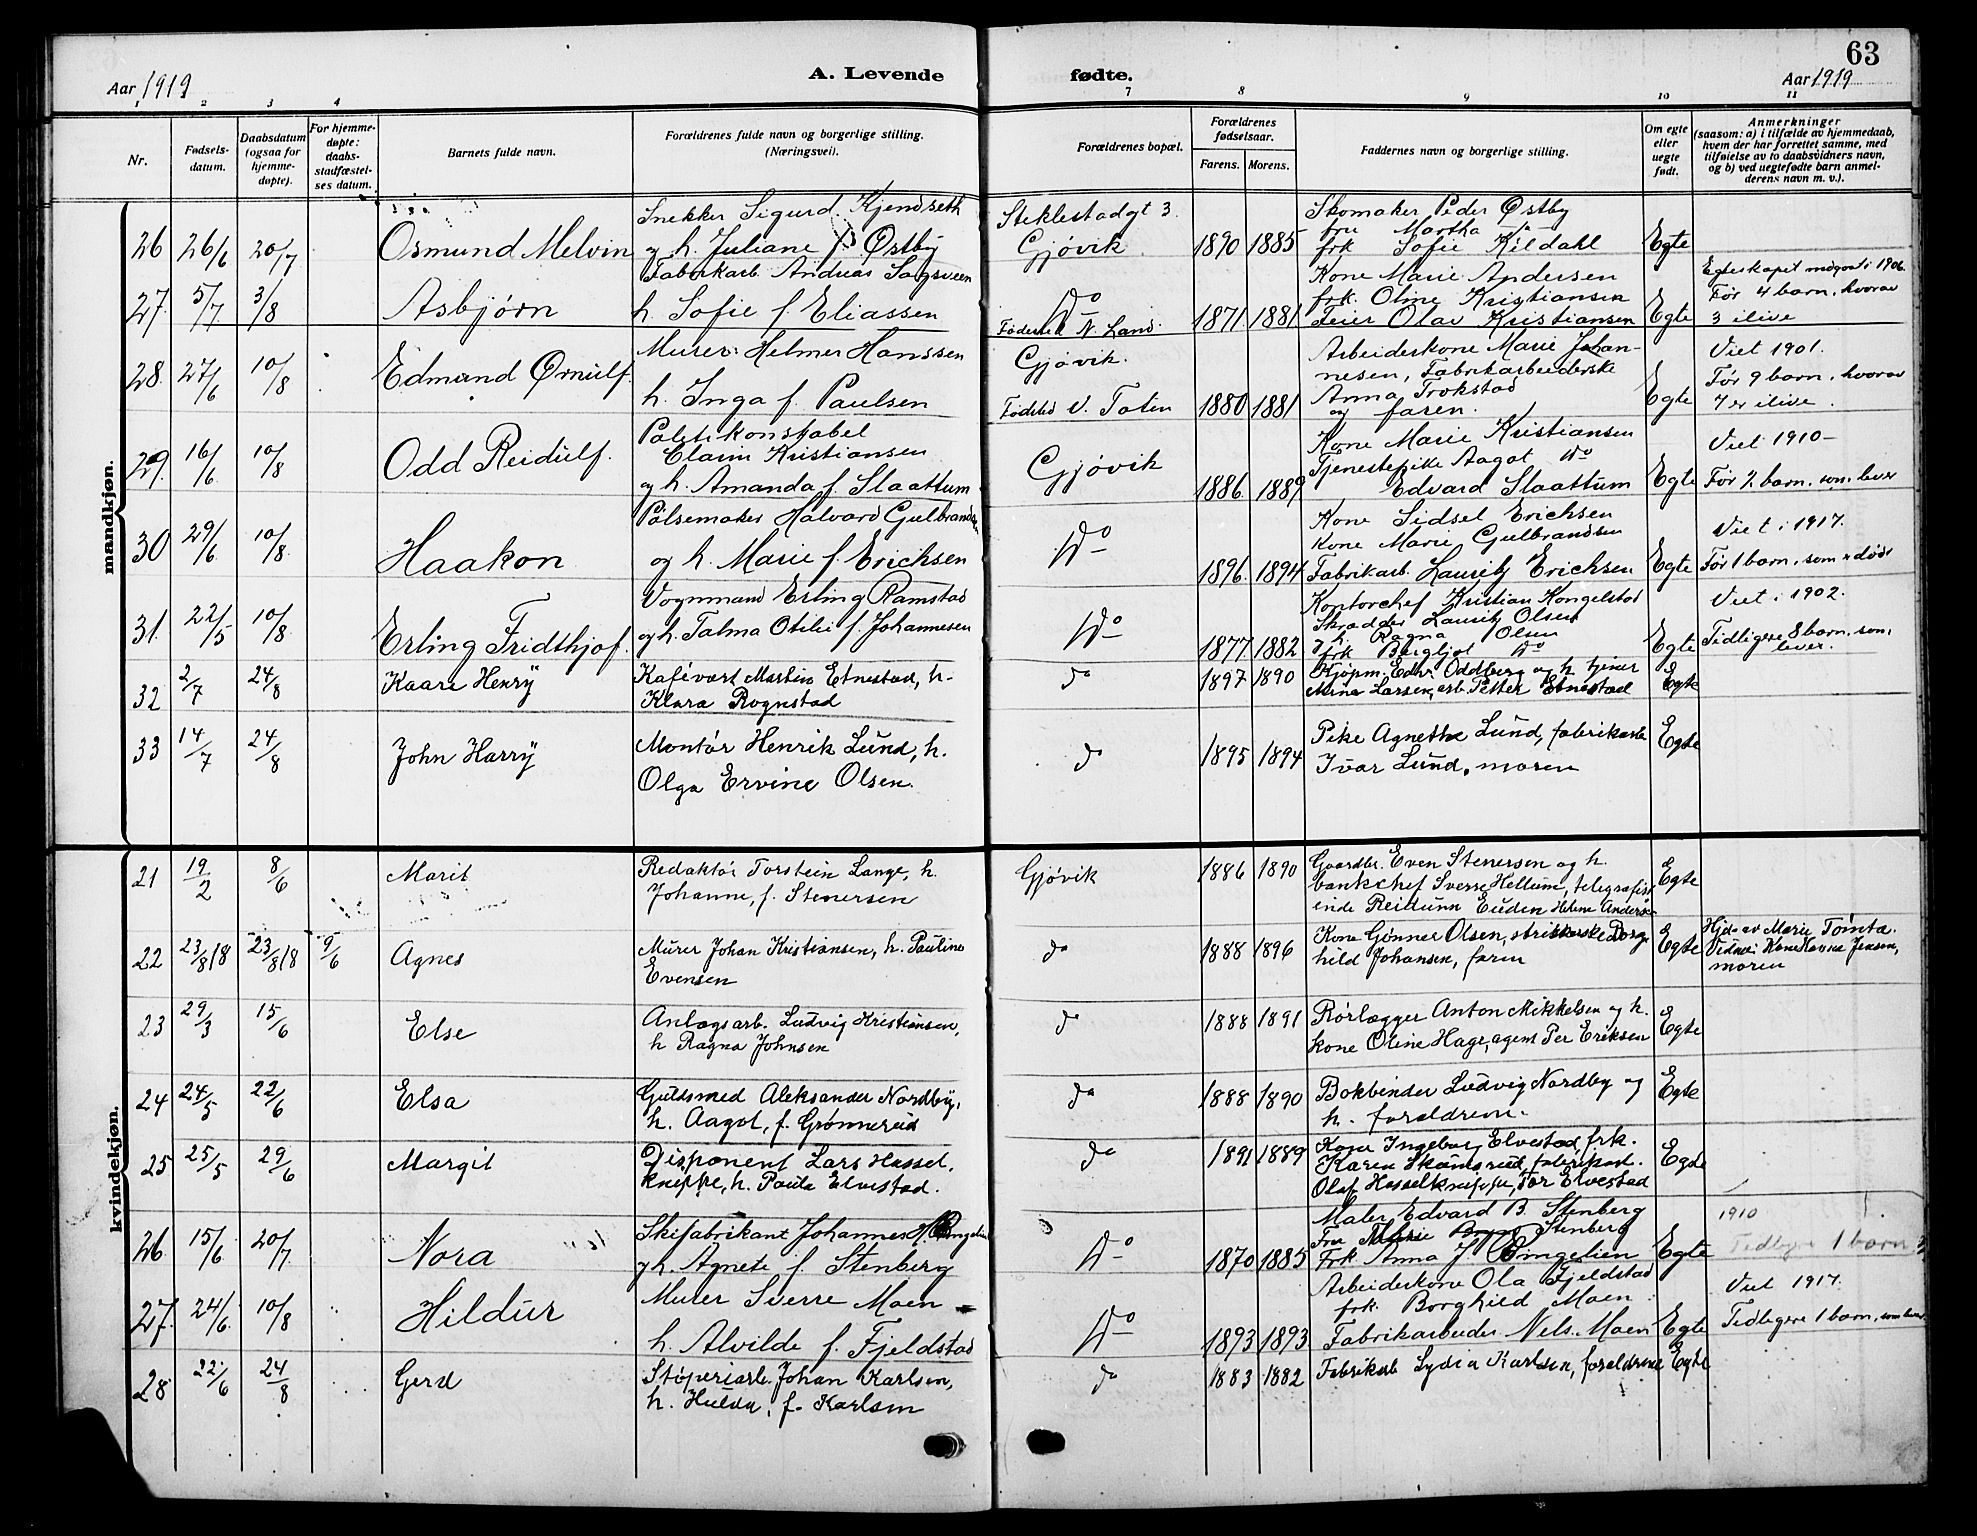 63
Aar 1919
A. Levende fødte.
Aar 1919
1 2 3 4 7 8 9 10 11
Nr.
Fødsels-
datum.
Daabsdatum
(ogsaa for
hjemme-
døpte).
For hjemme-
døpte:
daabs-
stadfæstel-
ses datum.
Barnets fulde navn.
Forældrenes fulde navn og borgerlige stilling.
(Næringsvei).
Forældrenes bopæl.
Forældrenes
fødselsaar.
Farens. Morens.
Faddernes navn og borgerlige stilling.
Om egte
eller
uegte
født.
Anmerkninger
(saasom: a) i tilfælde av hjemmedaab,
hvem der har forrettet samme, med
tilføielse av to daabsvidners navn,
og b) ved uegtefødte barn anmel-
derens navn m. v.).
mandkjøn.
26 26/6 20/7 Osmund Melvin
Snekker Sigurd Kjendseth
og h. Juliane f. Østby
Steklestadgt 3.
Gjøvik
1890 1885
Skomaker Peder Østby
fru Martha do
frk Sofie Kildahl
Egte
27. 5/7 3/8 Asbjørn
Fabrikarb. Andreas Sagsveen
h. Sofie f. Eliassen
Do
Fødested N. Land.
1871 1881
Kone Marie Andersen
frk. Oline Kristiansen
Feier Olav Kristiansen
Egte
Egteskapet indgaat i 1906.
Før 4 barn, hvorav
3 ilive
28. 27/6 10/8 Edmund Ørnulf.
Murer Helmer Hanssen
h. Inga f. Paulsen
Gjøvik.
Fødsted V. Toten
1880 1881
Arbeiderkone Marie Johan-
nesen, Fabrikarbeiderske
Anna Trokstad
og faren.
Egte
Viet 1901.
Før 9 barn, hvorav
7 er ilive.
29. 16/6 10/8 Odd Reidulf.
Politikonstabel
Kristiansen
og h. Amanda f. Slaattum
Gjøvik
1886. 1889
Kone Marie Kristiansen
Tjenestepike Aagot do
Edvard Slaattum
Egte
Viet 1910-
Før 2 barn, som lever
30 29/6 10/8 Haakon
Pølsemaker Halvard Gulbrandsen
og h. Marie f. Erichsen
Do
1896. 1894
Kone Sidsel Erichsen
Kone Marie Gulbrandsen
Fabrikarb. Lauritz Erichsen
Egte
Viet i 1917.
Før 1 barn, som er død
31. 22/5 10/8 Erling Fridthjof.
Vognmand Erling Ramstad
og h. Talma Otilie f. Johannesen
Do
1877 1882
Kontorchef Kristian Kongelstad
Skrædder Lauritz Olsen
og h. Ragna Olsen
frk Bergljot do
Egte
Viet i 1902.
Tidligere 8 barn, som
lever.
32 2/7 24/8 Kaare Henry
Kafévert Martin Etnestad, h.
Klara Rognstad
do
1897 1890
Kjøpm. Edv. Oddberg og h. tjener
Mina Larsen, arb. Petter Etnestad
Egte
33 14/7 24/8 John Harry
Montør Henrik Lund, h.
Olga Ervine Olsen.
do
1895 1894
Pike Agnethe Lund, fabrikarb
Ivar Lund, moren
Egte
kvindekjøn.
21 19/2 8/6 Marit
Redaktør Torstein Lange, h.
Johanne, f. Stenersen
Gjøvik
1886 1890
Gaardbr. Even Stenersen og h.
bankchef Sverre Hellum, telegrafist
inde Reidunn Euden Helene Anders
Egte
22 23/8 18 23/8 18 9/6 Agnes
Murer Johan Kristiansen, h. Pauline
Evensen
do
1888 1896
Kone Gønner Olsen, strikkerske Borg
hild Johansen, faren
Egte
Hjd. av Marie Tømte.
Vidne: Kone Hanna Jensen,
moren
23 29/3 15/6 Else
Anlægsarb. Ludvig Kristiansen,
h Ragna Johnsen
do
1888 1891
Rørlægger Anton Mikkelsen og h.
kone Oline Hage, agent Per Eriksen
Egte
24 24/5 22/6 Elsa
Guldsmed Aleksander Nordby,
h. Aagot, f. Grønnerud
do
1888 1890
Bokbinder Ludvig Nordby og
h. forældrene.
Egte
25 25/5 29/6 Margit
Disponent Lars Hassel.
knippe, h. Paula Elvestad.
do
1891 1889
Kone Ingeborg Elvestad, frk.
Karen Skamsrud, fabrikarb.
Olaf Hasselknippe, Tor Elvestad
Egte
26 15/6 20/7 Nora
Skifabrikant Johannes Bingelien
og h. Agnete f. Stenberg
Do
1870 1885
Maler Edvard B. Stenberg
Fru Marie Stenberg
Frk Anna J. Bingelien
Egte
1910
Tidligere 1 barn
27. 24/6 10/8 Hildur
Murer Sverre Moen
h. Alvilde f. Fjeldstad
Do
1893 1893
Arbeiderkone Ola Fjeldstad
frk. Borghild Moen
Fabrikarbeider Nels Moen
Egte
Viet 1917.
Tidligere 1 barn, som lever
28. 22/6 24/8 Gerd
Støperiarb. Johan Karlsen,
h. Hulda, f. Karlsen
do
1883 1882
Fabrikarb Lydia Karlsen, forældrene
Egte